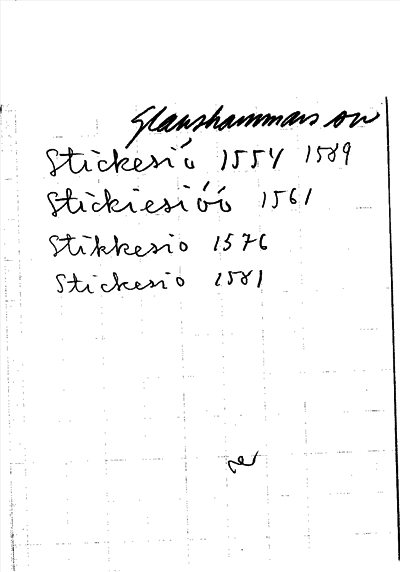 Glanshammars sn
Stickesiö 1554 1589
Stickiesiöö 1561
Stikkesio 1576
Stickesio 1581